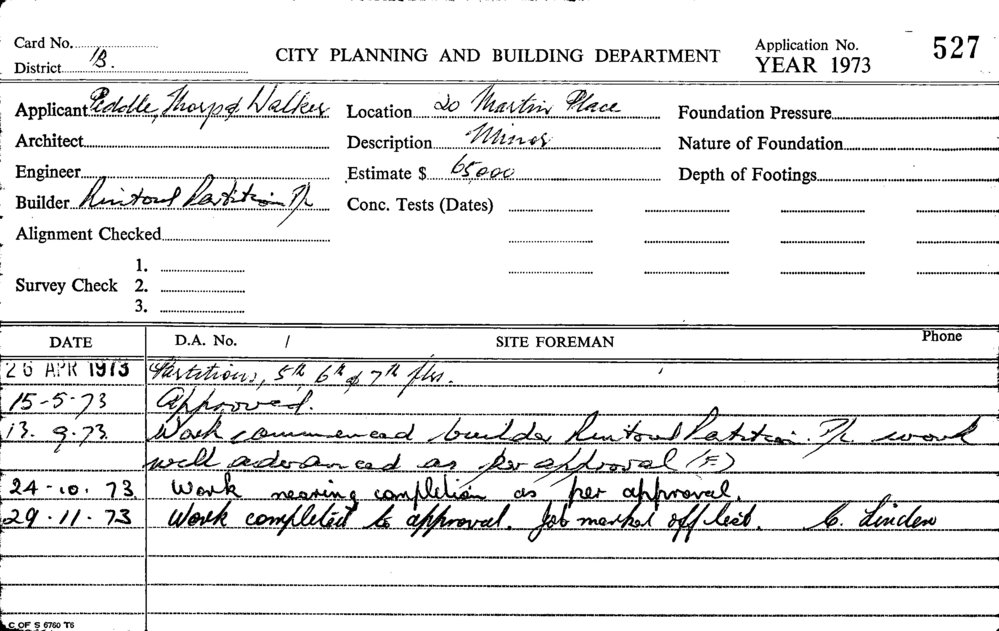 Card No.
District 1B.
CITY PLANNING AND BUILDING DEPARTMENT
Application No. 527
YEAR 1973
Applicant Peddle, Thorp & Walker
Location 20 Martin Place
Foundation Pressure
Architect
Description Minor
Nature of Foundation
Engineer
Estimate $ 65,000
Depth of Footings
Builder Rintoul Partition P/L
Conc. Tests (Dates)
Alignment Checked
Survey Check
1.
2.
3.
DATE D.A. No. / SITE FOREMAN Phone
26 APR 1973 Partitions, 5th, 6th & 7th flrs.
15-5-73 Approved.
13.9.73. Work commenced builder Rintoul Patition P/L work
well advanced as per approval
24-10.73 Work nearing completion as per approval.
29.11.73 Work completed to approval. Job market off list. C. Linden
C OF S 6760 T6